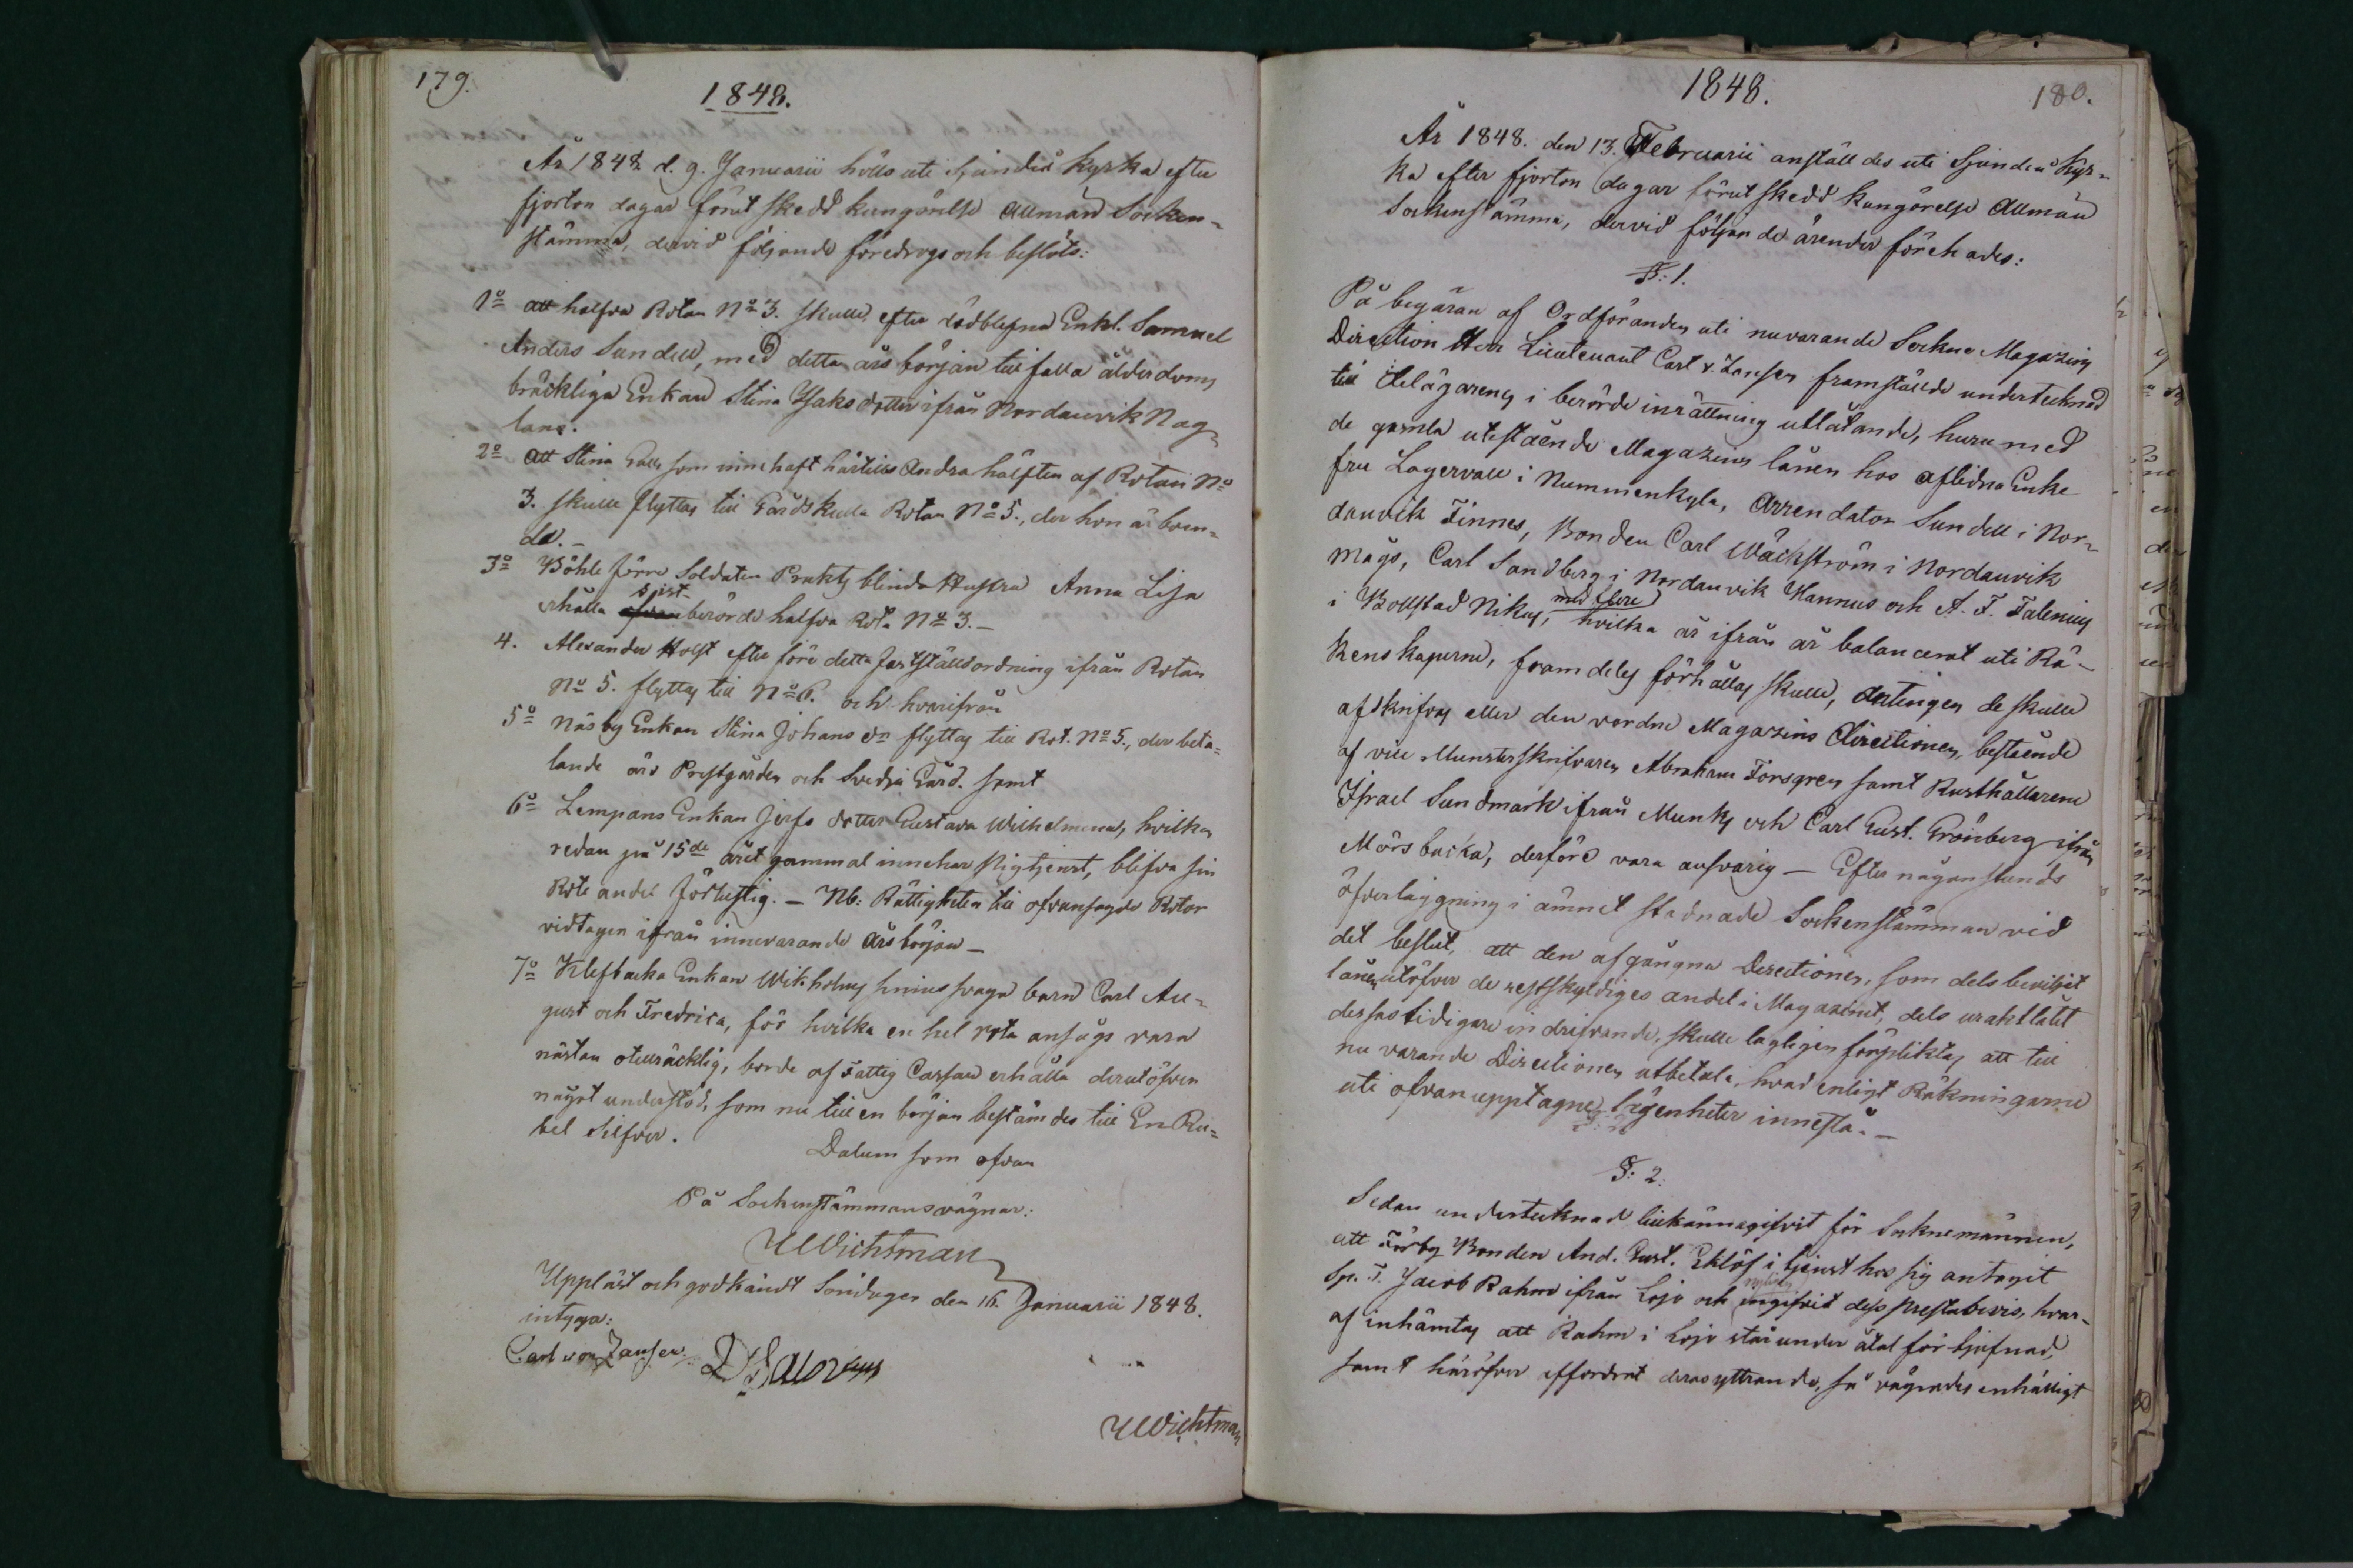 179.
1848.
År 1848 d. 9. Januarii hölls uti Sjundeå Kyrka efter
fjorton dagar förut skedd kungörelse allmän Socken-
stämma, dervid följande föredrogs och beslöts:
1o att halfva Rotan No 3. skulle efter dödblefne Enkl. Samuel
Anders Sundell, med detta års början tillfalla ålderdoms
bräckliga Enkan Stina Isaksdotter ifrån Nordanvik Nag-
lans.
2o att Stina Galle som innehaft härtills andra hälften af Rotan No
3. skulle flyttas till Gårdskulla Rotan No 5., der hon är boen-
de. –
3o Böhle förre Soldaten Prakts blinda Hustru Anna Lisa
erhålla sist berörde halfva Rota No 3. –
4. Alexander Holst efter före detta fastställd ordning ifrån Rotan
No 5. flyttas till No 6. och hvarifrån
5o Näsby Enkan Stina Johans dr flyttas till Rot. No 5., der beta-
lande äro Prestgården och Svedja Gård. samt
6o Lempans Enkan Jerfs dotter Gustava Wilhelmina, hvilken
redan på 15de året gammal innehar Pigtjenst, blifva sin
Rote andel förlustig. – Nb: Rättigheten till ofvansagde Rotor
vidtagen ifrån innevarande års början –
7o Klefbacka Enkan Wikholms sinnessvaga barn Carl Au-
gust och Fredrica, för hvilka en hel rota ansågs vara
nästan otillräcklig, borde af Fattig Cassan erhålla derutöfver
något understöd, som nu till en början bestämdes till En Ru-
bel Silfver.
Datum som ofvan
På Sockenstämmans vägnar:
Wichtman
Uppläst och godkändt Söndagen den 16. Januarii 1848.
intyga:
Carl von Zansen.
Wichtman
1848.
180.
År 1848. den 13. Februarii anställdes uti Sjundeå Kyr-
ka efter fjorton dagar förut skedd Kungörelse Allmän
Sockenstämma, dervid följande ärender förehades:
§: 1.
På begäran af Ordföranden uti nuvarande Sockne Magazins
Direction Herr Lieutenant Carl v. Zansen framställde undertecknad
till delägarena i berörde inrättning utlåtande, huru med
de gamla utestående Magazins lånen hos aflidna Enke
fru Lagervall i Nummenkyla, Arrendator Sundell i Nor-
danvik Finnes, Bonden Carl Wäckström i Nordanvik
Mågs, Carl Sandberg i Nordanvik Hannus och A. F. Falenius
i Bollstad Nikus, med flere hvilka år ifrån år balancerat uti Rä-
kenskaperne, framdeles förhållas skulle, antingen de skulle
afskrifvas eller den vordne Magazins Directionen, bestående
af vice Munsterskrifvaren Abraham Forsgren samt Rusthållarene
Israel Sundmark ifrån Munks och Carl Gust. Grönberg ifrån
Mörsbacka, derföre vara ansvarig – Efter någon stunds
öfverläggning i ämnet stadnade Sockenstämman vid
det beslut, att den afgångna Directionen, som dels beviljat
lånen utöfver de restskyldiges andel i Magazinet, dels uraktlåtit
dessas tidigare indrifvande, skulle lagligen förpliktas att till
nu varande Directionen utbetala, hvad enligt Räkningarne
uti ofvanupptagne lägenheter innestå. –
§: 2.
Sedan undertecknad tillkännagifvit för Soknemännen,
att Förby Bonden And. Gust. Eklöf i tjenst hos sig antagit
Sp. F. Jacob Rahm ifrån Lojo och nyligen ingifvit dess prestabevis, hvar-
af inhämtas att Rahm i Lojo står under åtal för tjufnad,
samt häröfver affordrat deras yttrande, så vägrades enhälligt